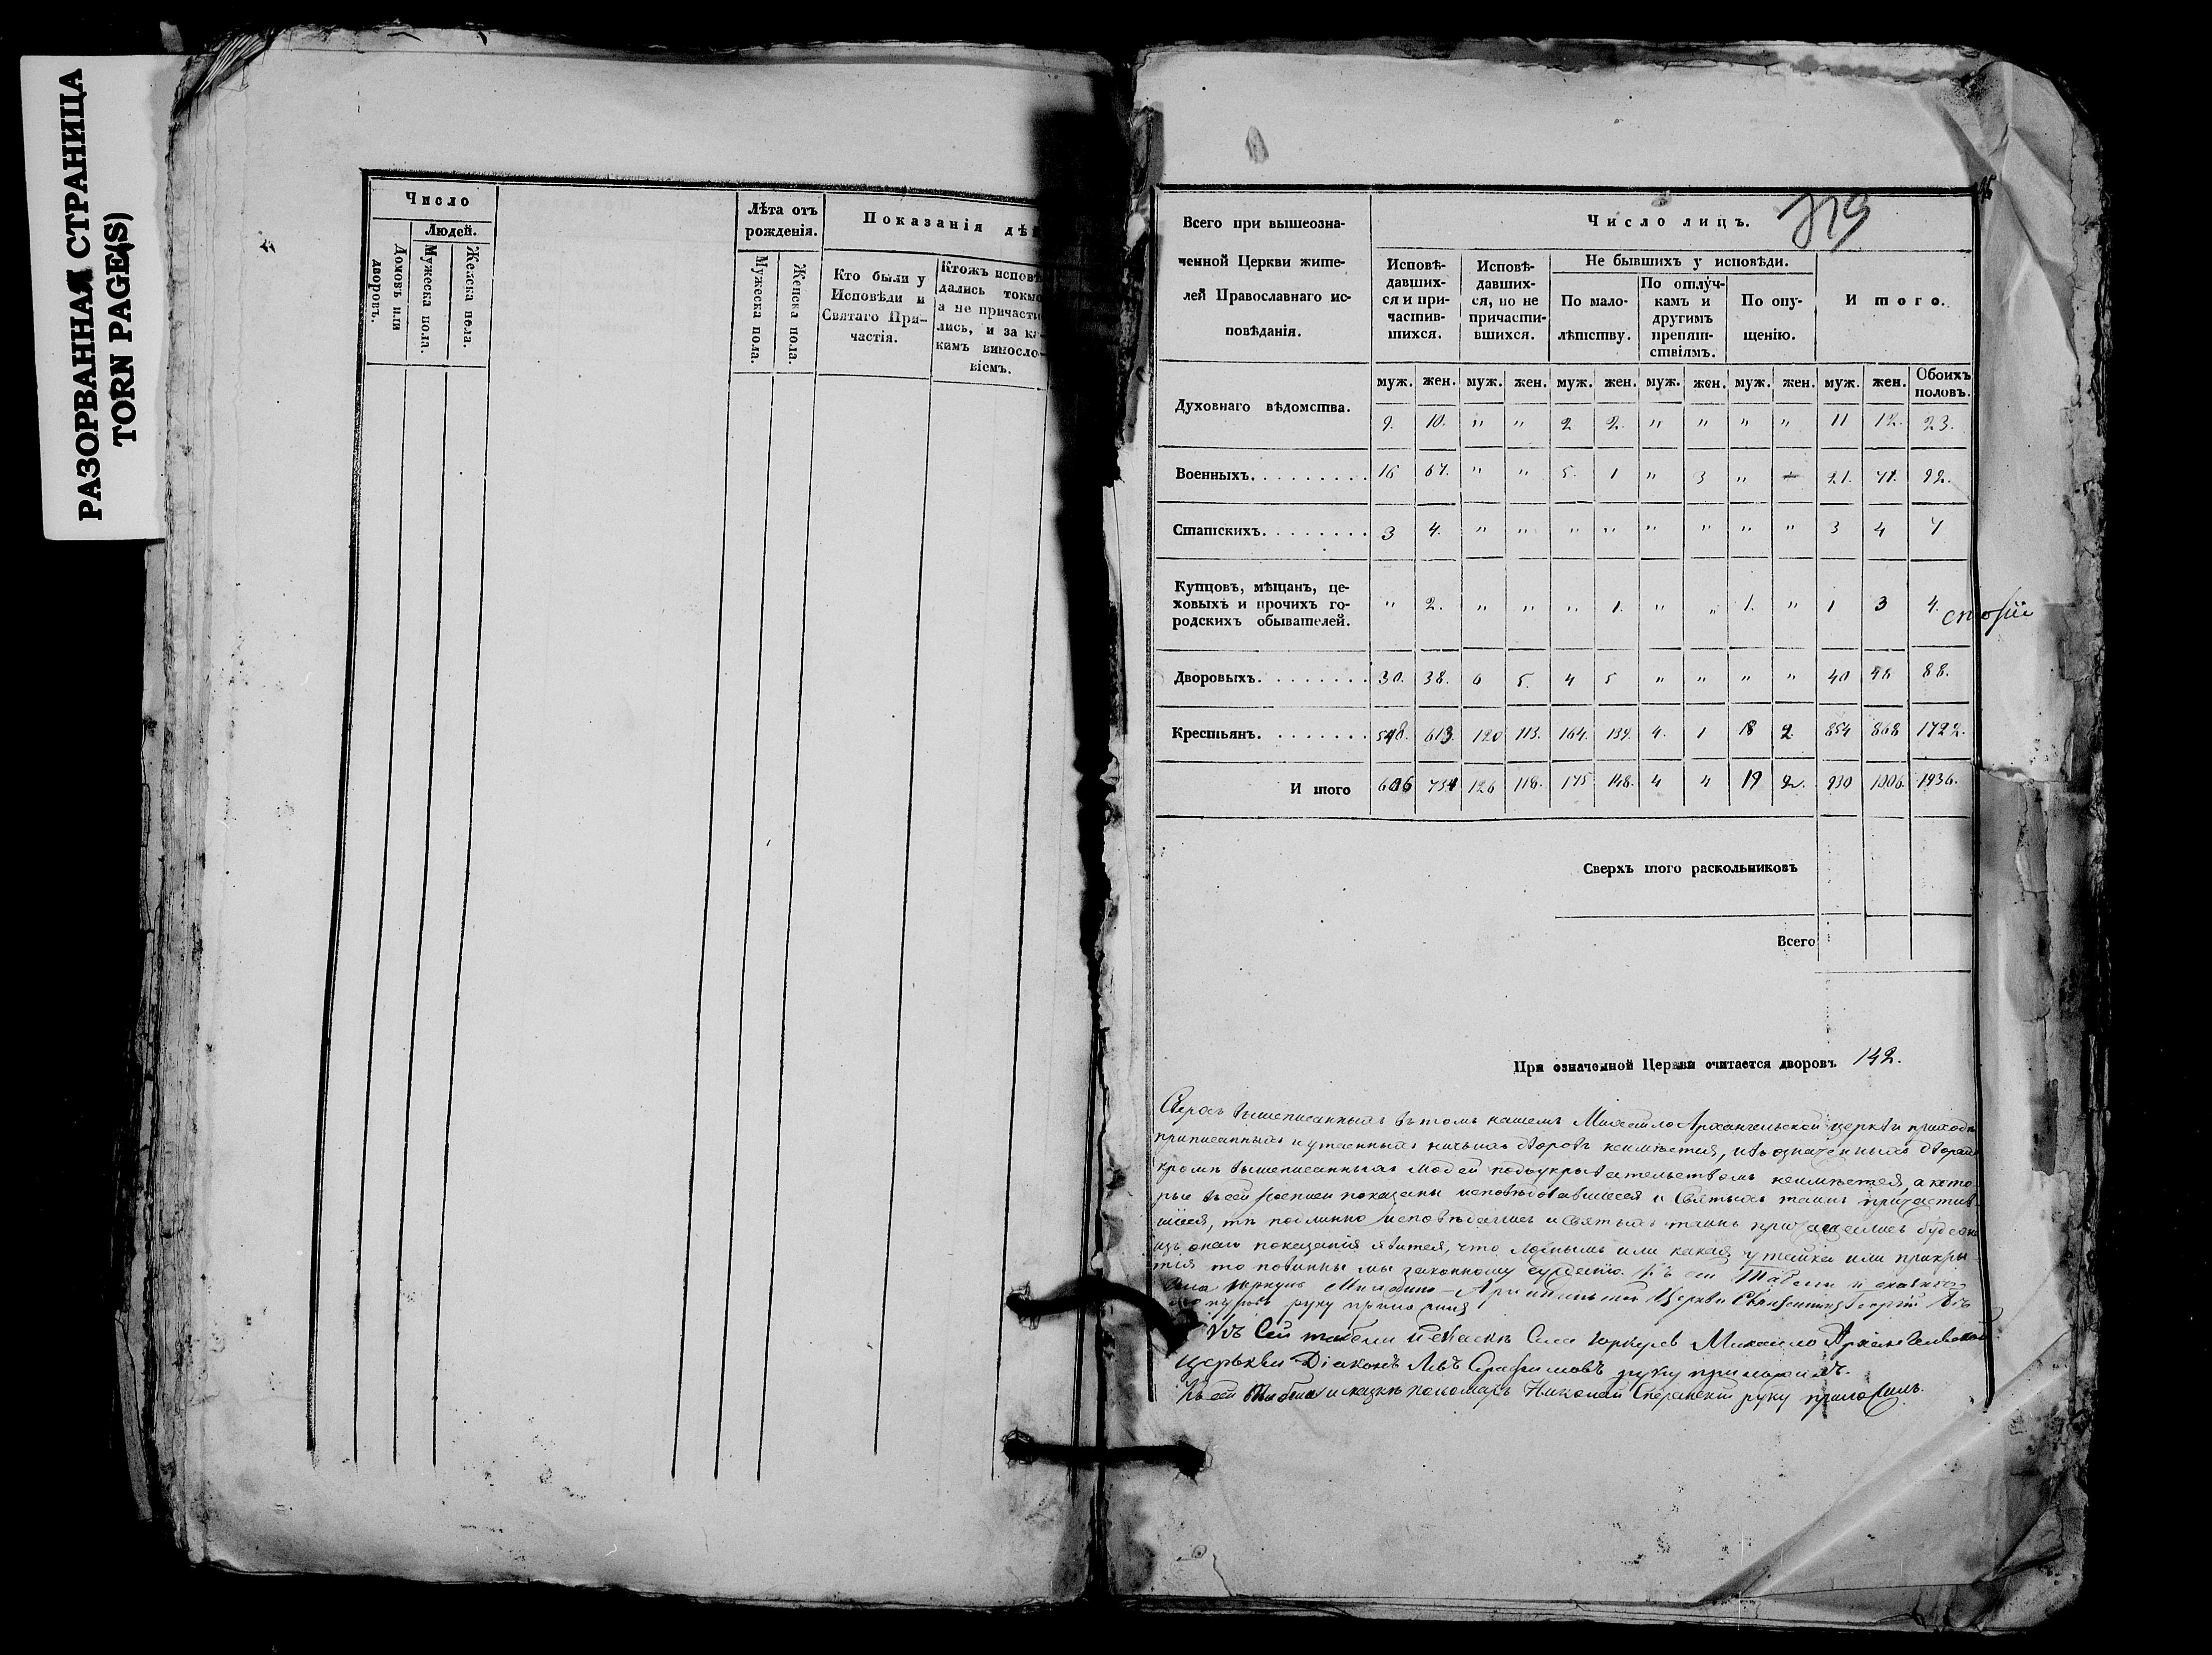 РАЗОРВАННАЯ СТРАНИЦА
TORN PAGE(S)
Число
Людей.
Домовъ или дворовъ.
Мужеска пола.
Женска пола.
Лѣта отъ рожденія.
Мужеска пола.
Женска пола.
Показанія дѣ
Кто были у
Исповѣди и
Святаго При-
частія.
Ктожъ исповѣ
дались токмо
а не причасти
лись, и за ка-
кимъ виносло-
віемъ.
319
Всего при вышеозна-
ченной Церкви жите-
лей Православнаго ис-
повѣданія.
Число лицъ.
Исповѣ-
давших-
ся и при-
частив-
шихся.
Исповѣ-
давших-
ся, но не
причасти-
вшихся.
Не бывшихъ у исповѣди.
По мало-
лѣтству.
По отлуч-
камъ и
другимъ
препят-
ствіямъ.
По опу-
щенію.
Итого.
муж. жен. муж. жен. муж. жен. муж. жен. муж. жен. муж. жен. Обоихъ половъ.
Духовнаго вѣдомства. 9. 10. " " 2 2. " " " " 11 12. 23.
Военныхъ. 16 67. " " 5. 1 " 3 " 21. 71. 92.
Статскихъ. 3 4. " " " " " " " " 3 4 7
Купцовъ, мѣщанъ, це-
ховыхъ и прочихъ го-
родскихъ обывателей. " 2. " " " 1. " " 1. " 1 3 4.
Дворовыхъ. 30. 38. 6 5. 4 5 " " " " 40 48 88.
Крестьянъ. 548. 613. 120 113. 164. 139. 4. 1 18 2. 854 868 1722.
И того 606 734 126 118. 175 148. 4 4 19 2. 930 1006. 1936.
Сверхъ того раскольниковъ
Всего
При означенной Церкви считается дворовъ 142.
Сверхъ вышеписанныхъ въ томъ нашемъ Михайло Архангельской церкви приходѣ
приписанныхъ и утаенныхъ ничьихъ дворовъ неимѣется, и въ означенныхъ дворахъ
кромѣ вышеписанныхъ людей подъ укрывательствомъ неимѣется, а кото-
рые въ сей росписи показаны исповѣдовавшиеся и Святыхъ таинъ причастив-
шиеся, тѣ подлинно исповѣдались и Святыхъ таинъ причащались буде они
изъ онаго показанія явится, что ложнымъ или какая утайка или прикры-
тия то повинны мы законному сужденію. Къ сей Табели и сказкѣ
Села Церкви Священникъ Георгій
руку приложилъ
Къ Сей табели и сказкѣ Села Михайло Архангельской
церькви Діаконъ Левъ Серафимовъ руку приложилъ.
Къ сей табели и сказкѣ пономарь Николай Сперанскій руку приложилъ.